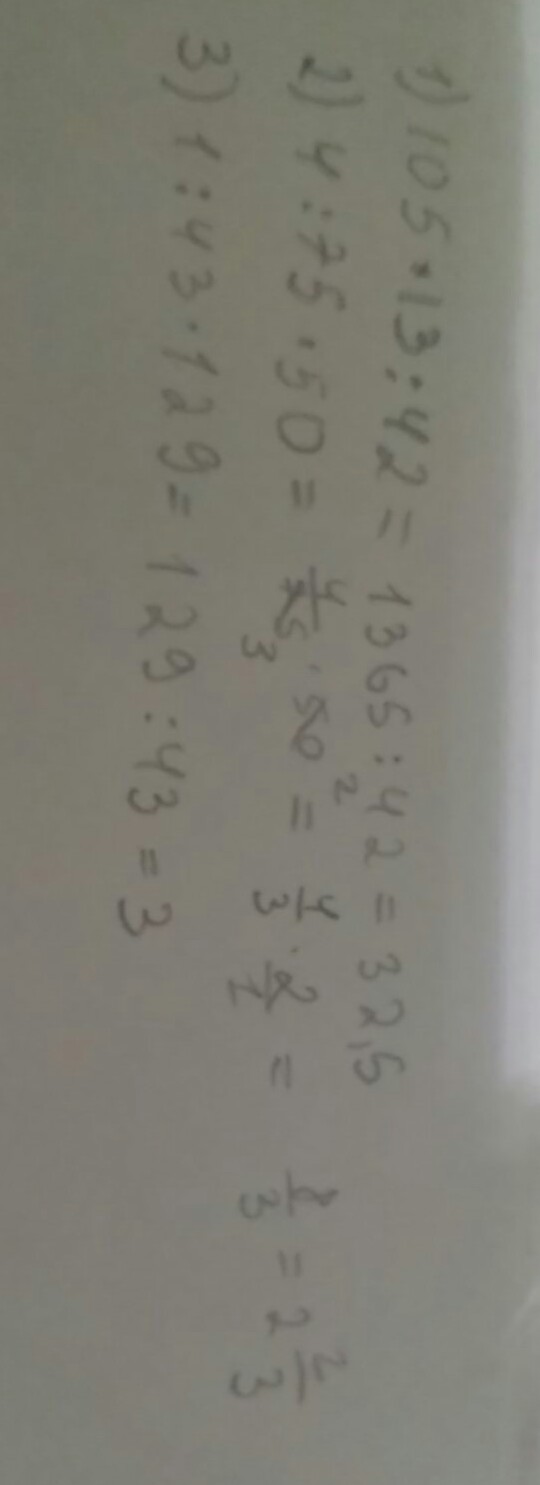 1) 105 · 13 : 42 = 1365 : 42 = 32,5
2) 4 : 75 · 50 = 4/75 3 · 50 2 = 4/3 · 2/1 = 8/3 = 2 2/3
3) 1 : 43 · 129 = 129 : 43 = 3